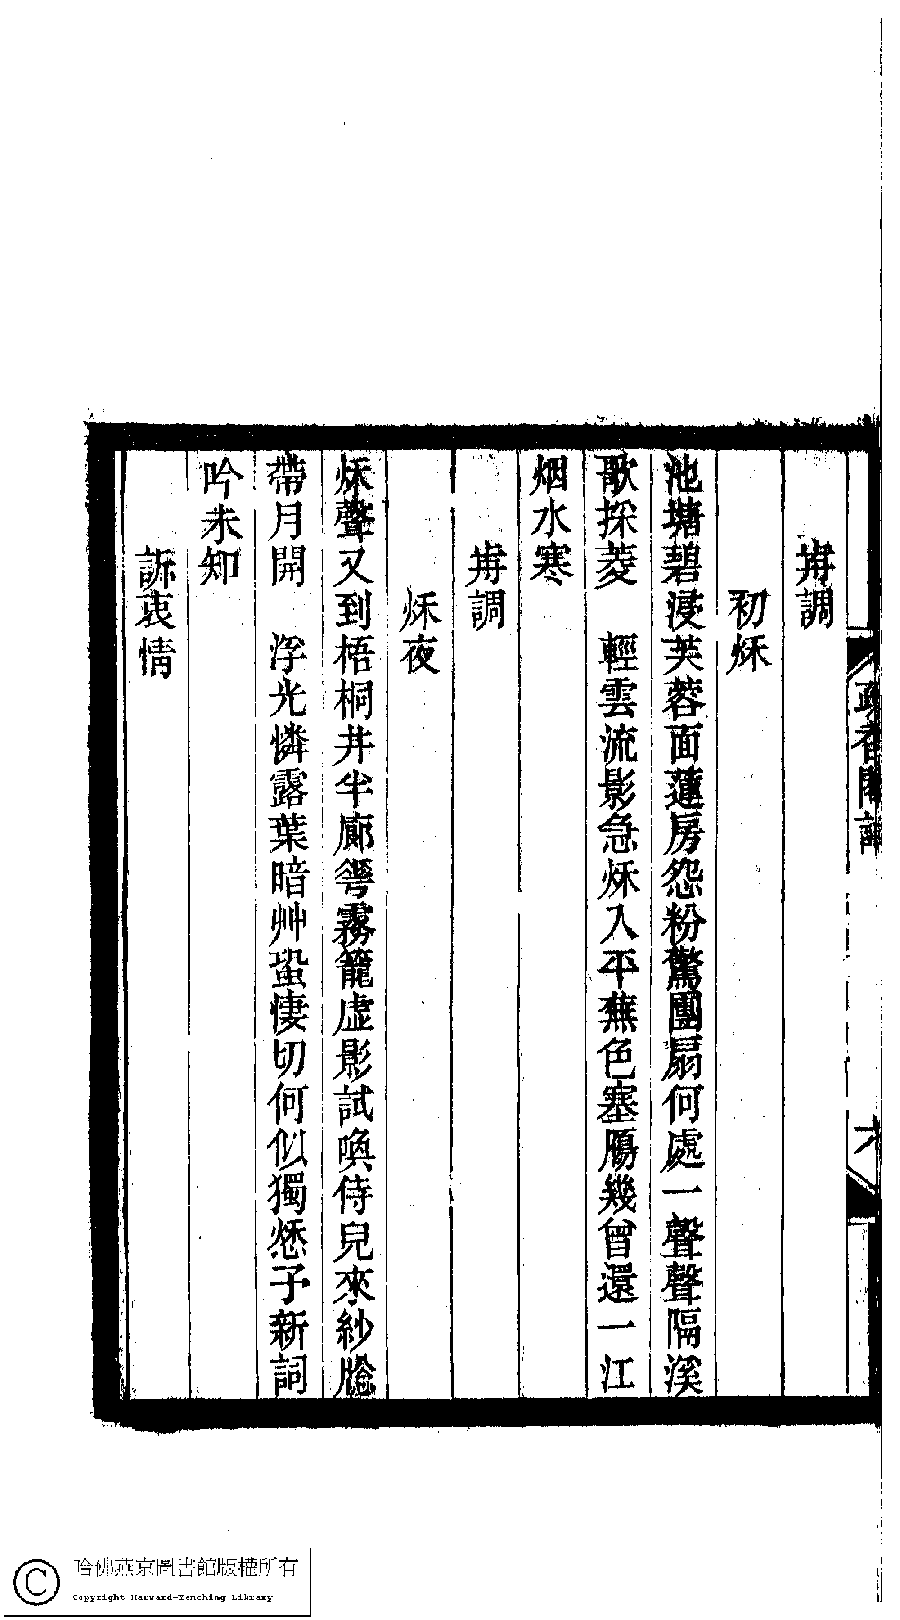 再調
初秌
池塘碧浸芙蓉面蓮房怨粉驚團扇何處一聲聲隔溪
歌採菱　輕雲流影急秌入平蕪色塞鴈幾曾還一江
烟水寒
再調
秌夜
秌聲又到梧桐井半廊雩霧籠虛影試喚侍兒來紗牕
帶月開　浮光憐露葉暗艸蛩悽切何似獨愁予新詞
吟未知
訴衷情
哈佛燕京圖書館版權所有
Copyright Harvard-Yenching Library